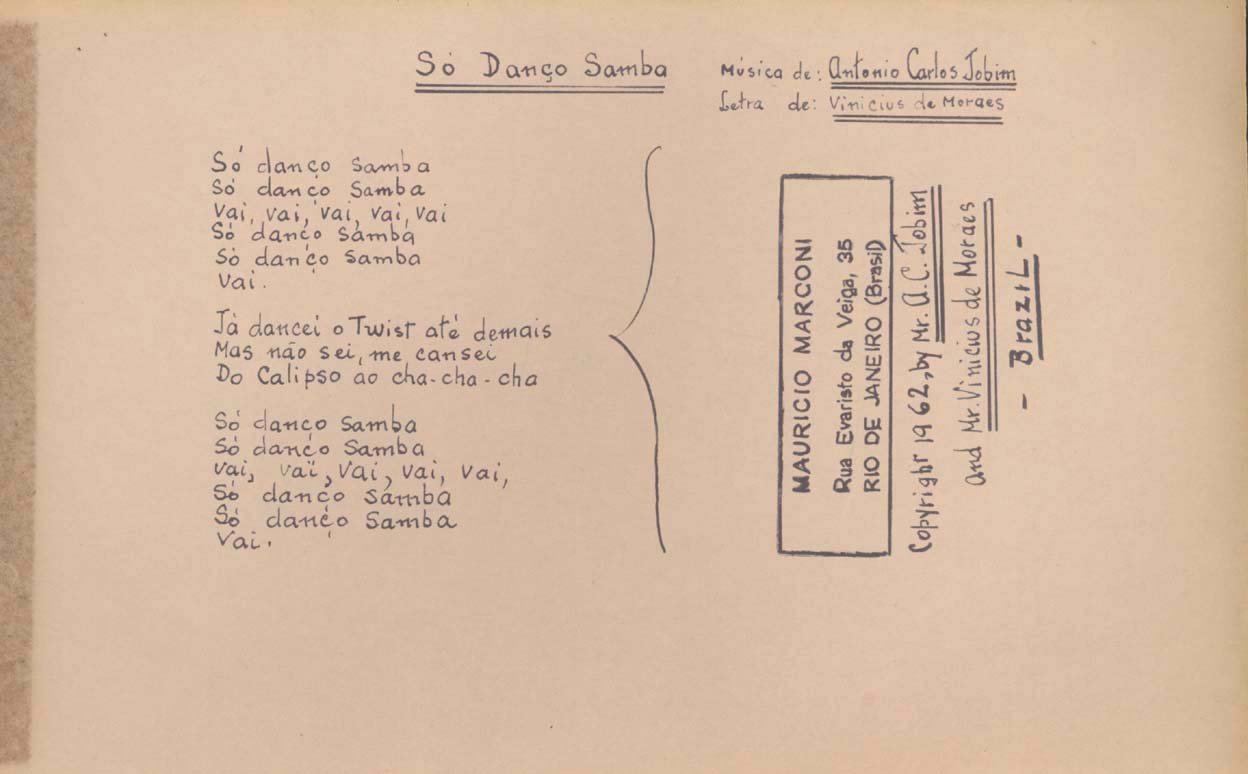 Só Danço Samba
Música de: Antonio Carlos Jobim
Letra de: Vinicius de Moraes
Só danço samba
Só danço samba
Vai, vai, vai, vai, vai
Só danço samba
Só danço samba
Vai.
Já dancei o Twist até demais
Mas não sei, me cansei
Do Calipso ao cha-cha-cha
Só danço samba
Só danço samba
Vai, vai, vai, vai, vai,
Só danço samba
Só danço samba
Vai.
MAURICIO MARCONI
Rua Evaristo da Veiga, 35
RIO DE JANEIRO (Brasil)
Copyright 1962, by Mr. A.C. Jobim
and Mr. Vinicius de Moraes
- Brazil -